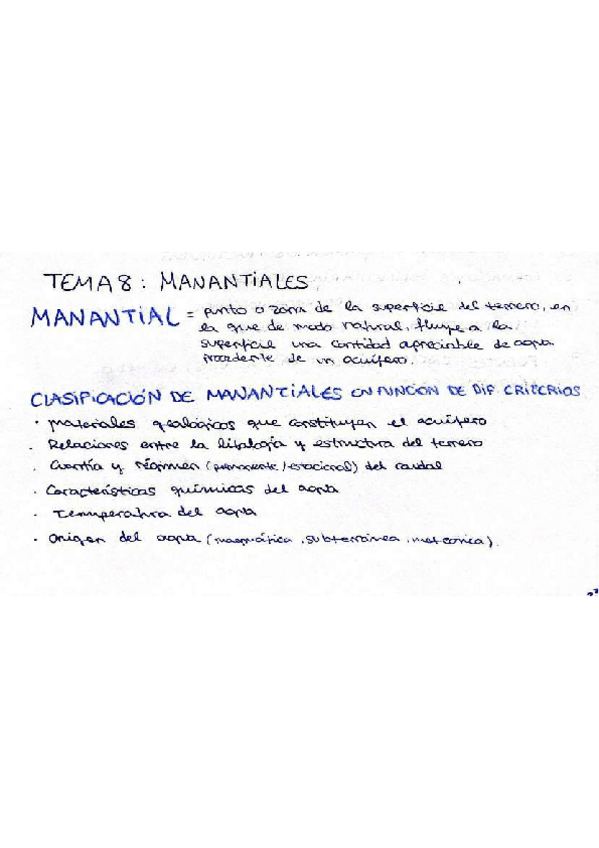 TEMA 8: MANANTIALES
MANANTIAL = punto o zona de la superficie del terreno, en
la que de modo natural, fluye a la
superficie una cantidad apreciable de agua
procedente de un acuífero.
CLASIFICACIÓN DE MANANTIALES EN FUNCIÓN DE DIF. CRITERIOS
· materiales geológicos que constituyen el acuífero
· Relaciones entre la litología y estructura del terreno
· Cuantía y régimen (permanente/estacional) del caudal
· Características químicas del agua
· Temperatura del agua
· Origen del agua (magmática, subterránea, meteorica).